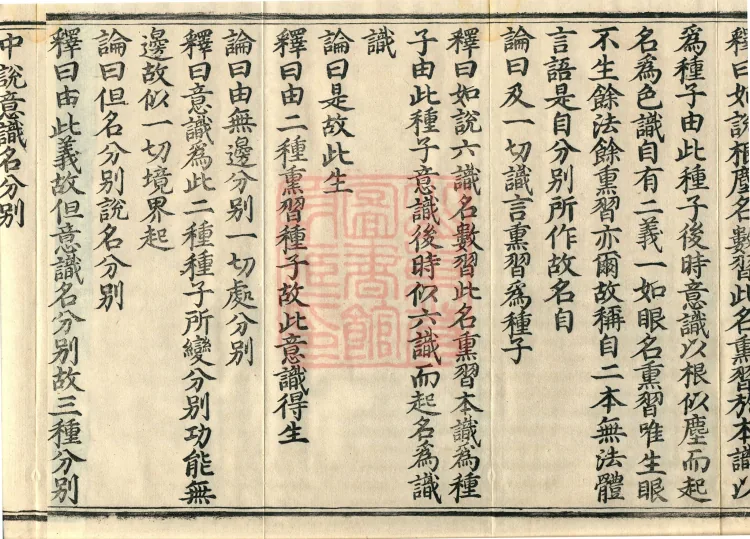 釋曰如說根塵名數習此名熏習於本識以
爲種子由此種子後時意識以根似塵而起
名爲色識自有二義一如眼名熏習唯生眼
不生餘法餘熏習亦爾故稱自二本無法體
言語是自分別所作故名自
論曰及一切識言熏習爲種子
釋曰如說六識名數習此名熏習本識爲種
子由此種子意識後時似六識而起名爲識
識
論曰是故此生
釋曰由二種熏習種子故此意識得生
論曰由無邊分別一切處分別
釋曰意識爲此二種種子所變分別功能無
邊故似一切境界起
論曰但名分別說名分別
釋曰由此義故但意識名分別故三種分別
中說意識名分別